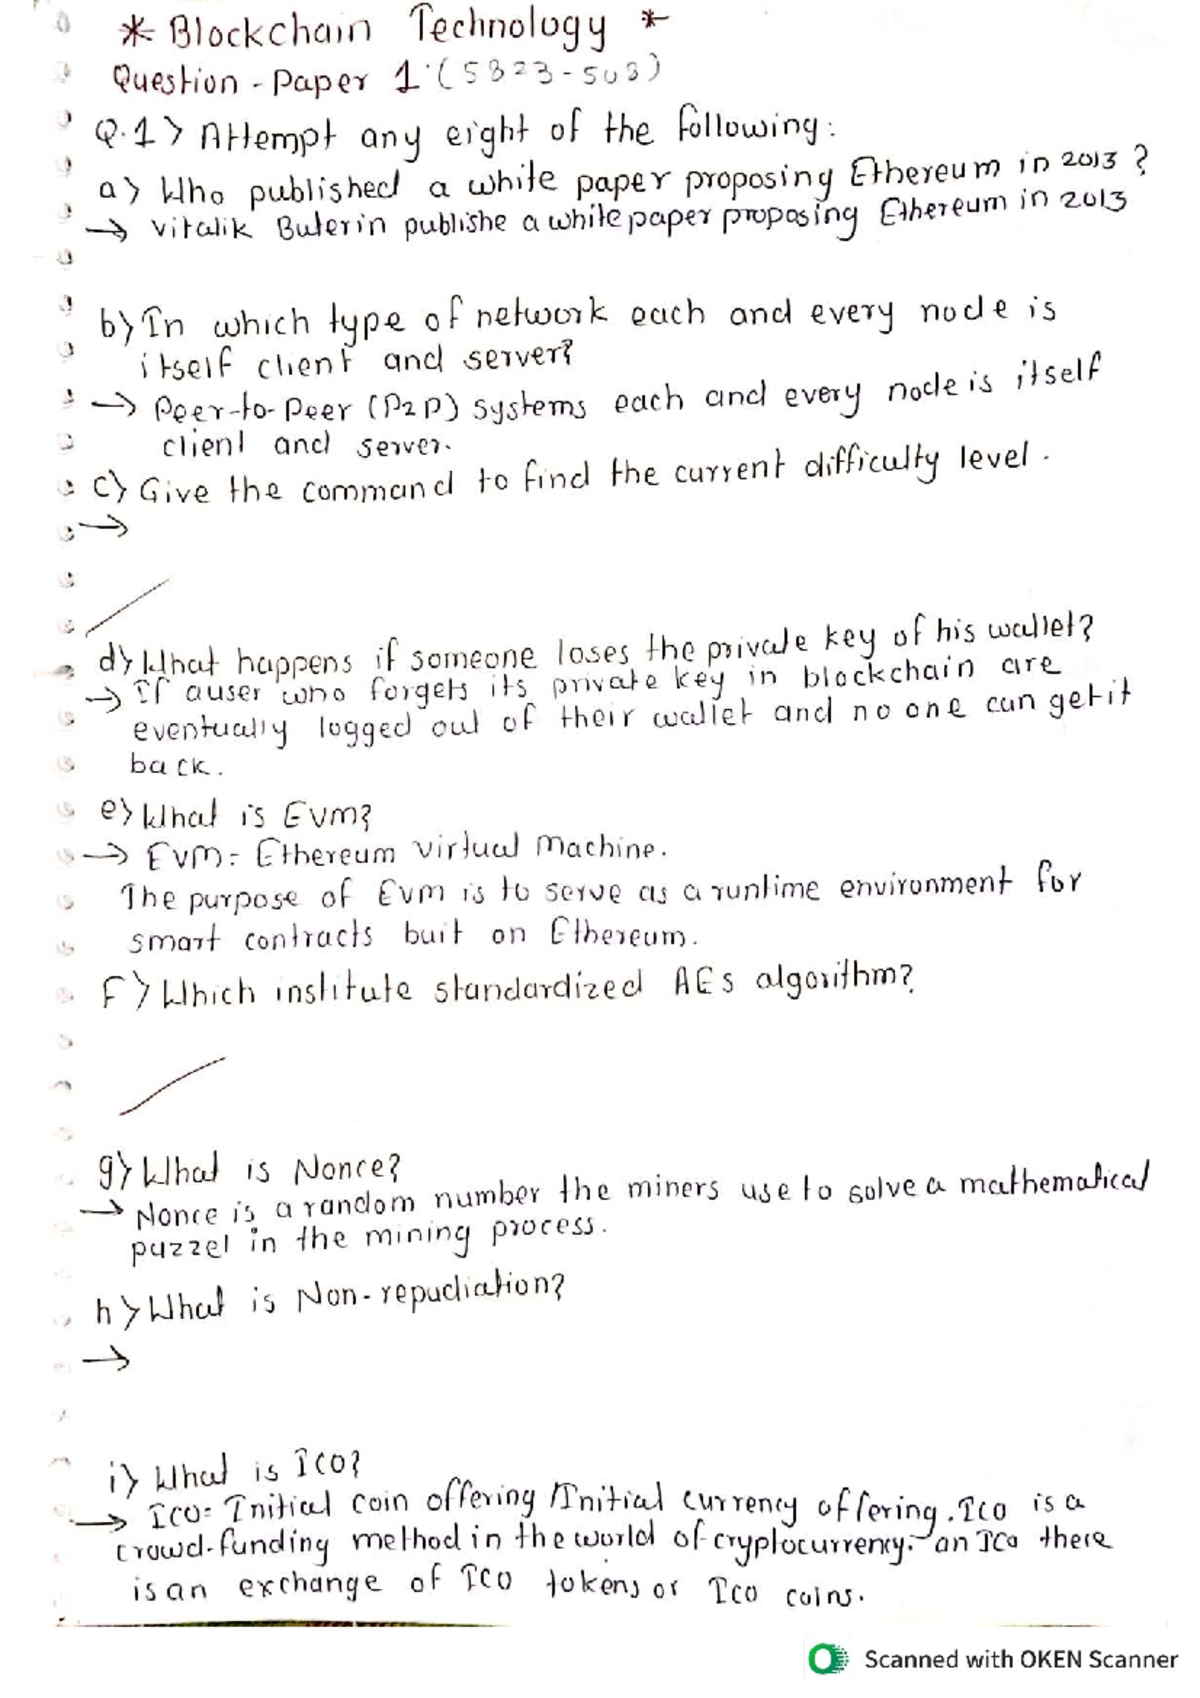 * Blockchain Technology *
Question - Paper 1 (5823-503)
Q.1> Attempt any eight of the following:
a> Who published a white paper proposing Ethereum in 2013 ?
→ Vitalik Buterin publishe a white paper proposing Ethereum in 2013
b> In which type of network each and every node is
itself client and server?
→ Peer-to-Peer (P2P) systems each and every node is itself
client and server.
c> Give the command to find the current difficulty level.
→
d> What happens if someone loses the private key of his wallet?
→ If a user who forgets its private key in blockchain are
eventually logged out of their wallet and no one can get it
back.
e> What is EVM?
→ EVM = Ethereum Virtual Machine.
The purpose of EVM is to serve as a runtime environment for
smart contracts buit on Ethereum.
F> Which institute standardized AEs algorithm?
g> What is Nonce?
→ Nonce is a random number the miners use to solve a mathematical
puzzel in the mining process.
h> What is Non-repudiation?
→
i> What is ICO?
→ ICO = Initial coin offering / Initial currency offering. ICO is a
crowd-funding method in the world of cryptocurrency. an ICO there
is an exchange of ICO tokens or ICO coins.
Scanned with OKEN Scanner